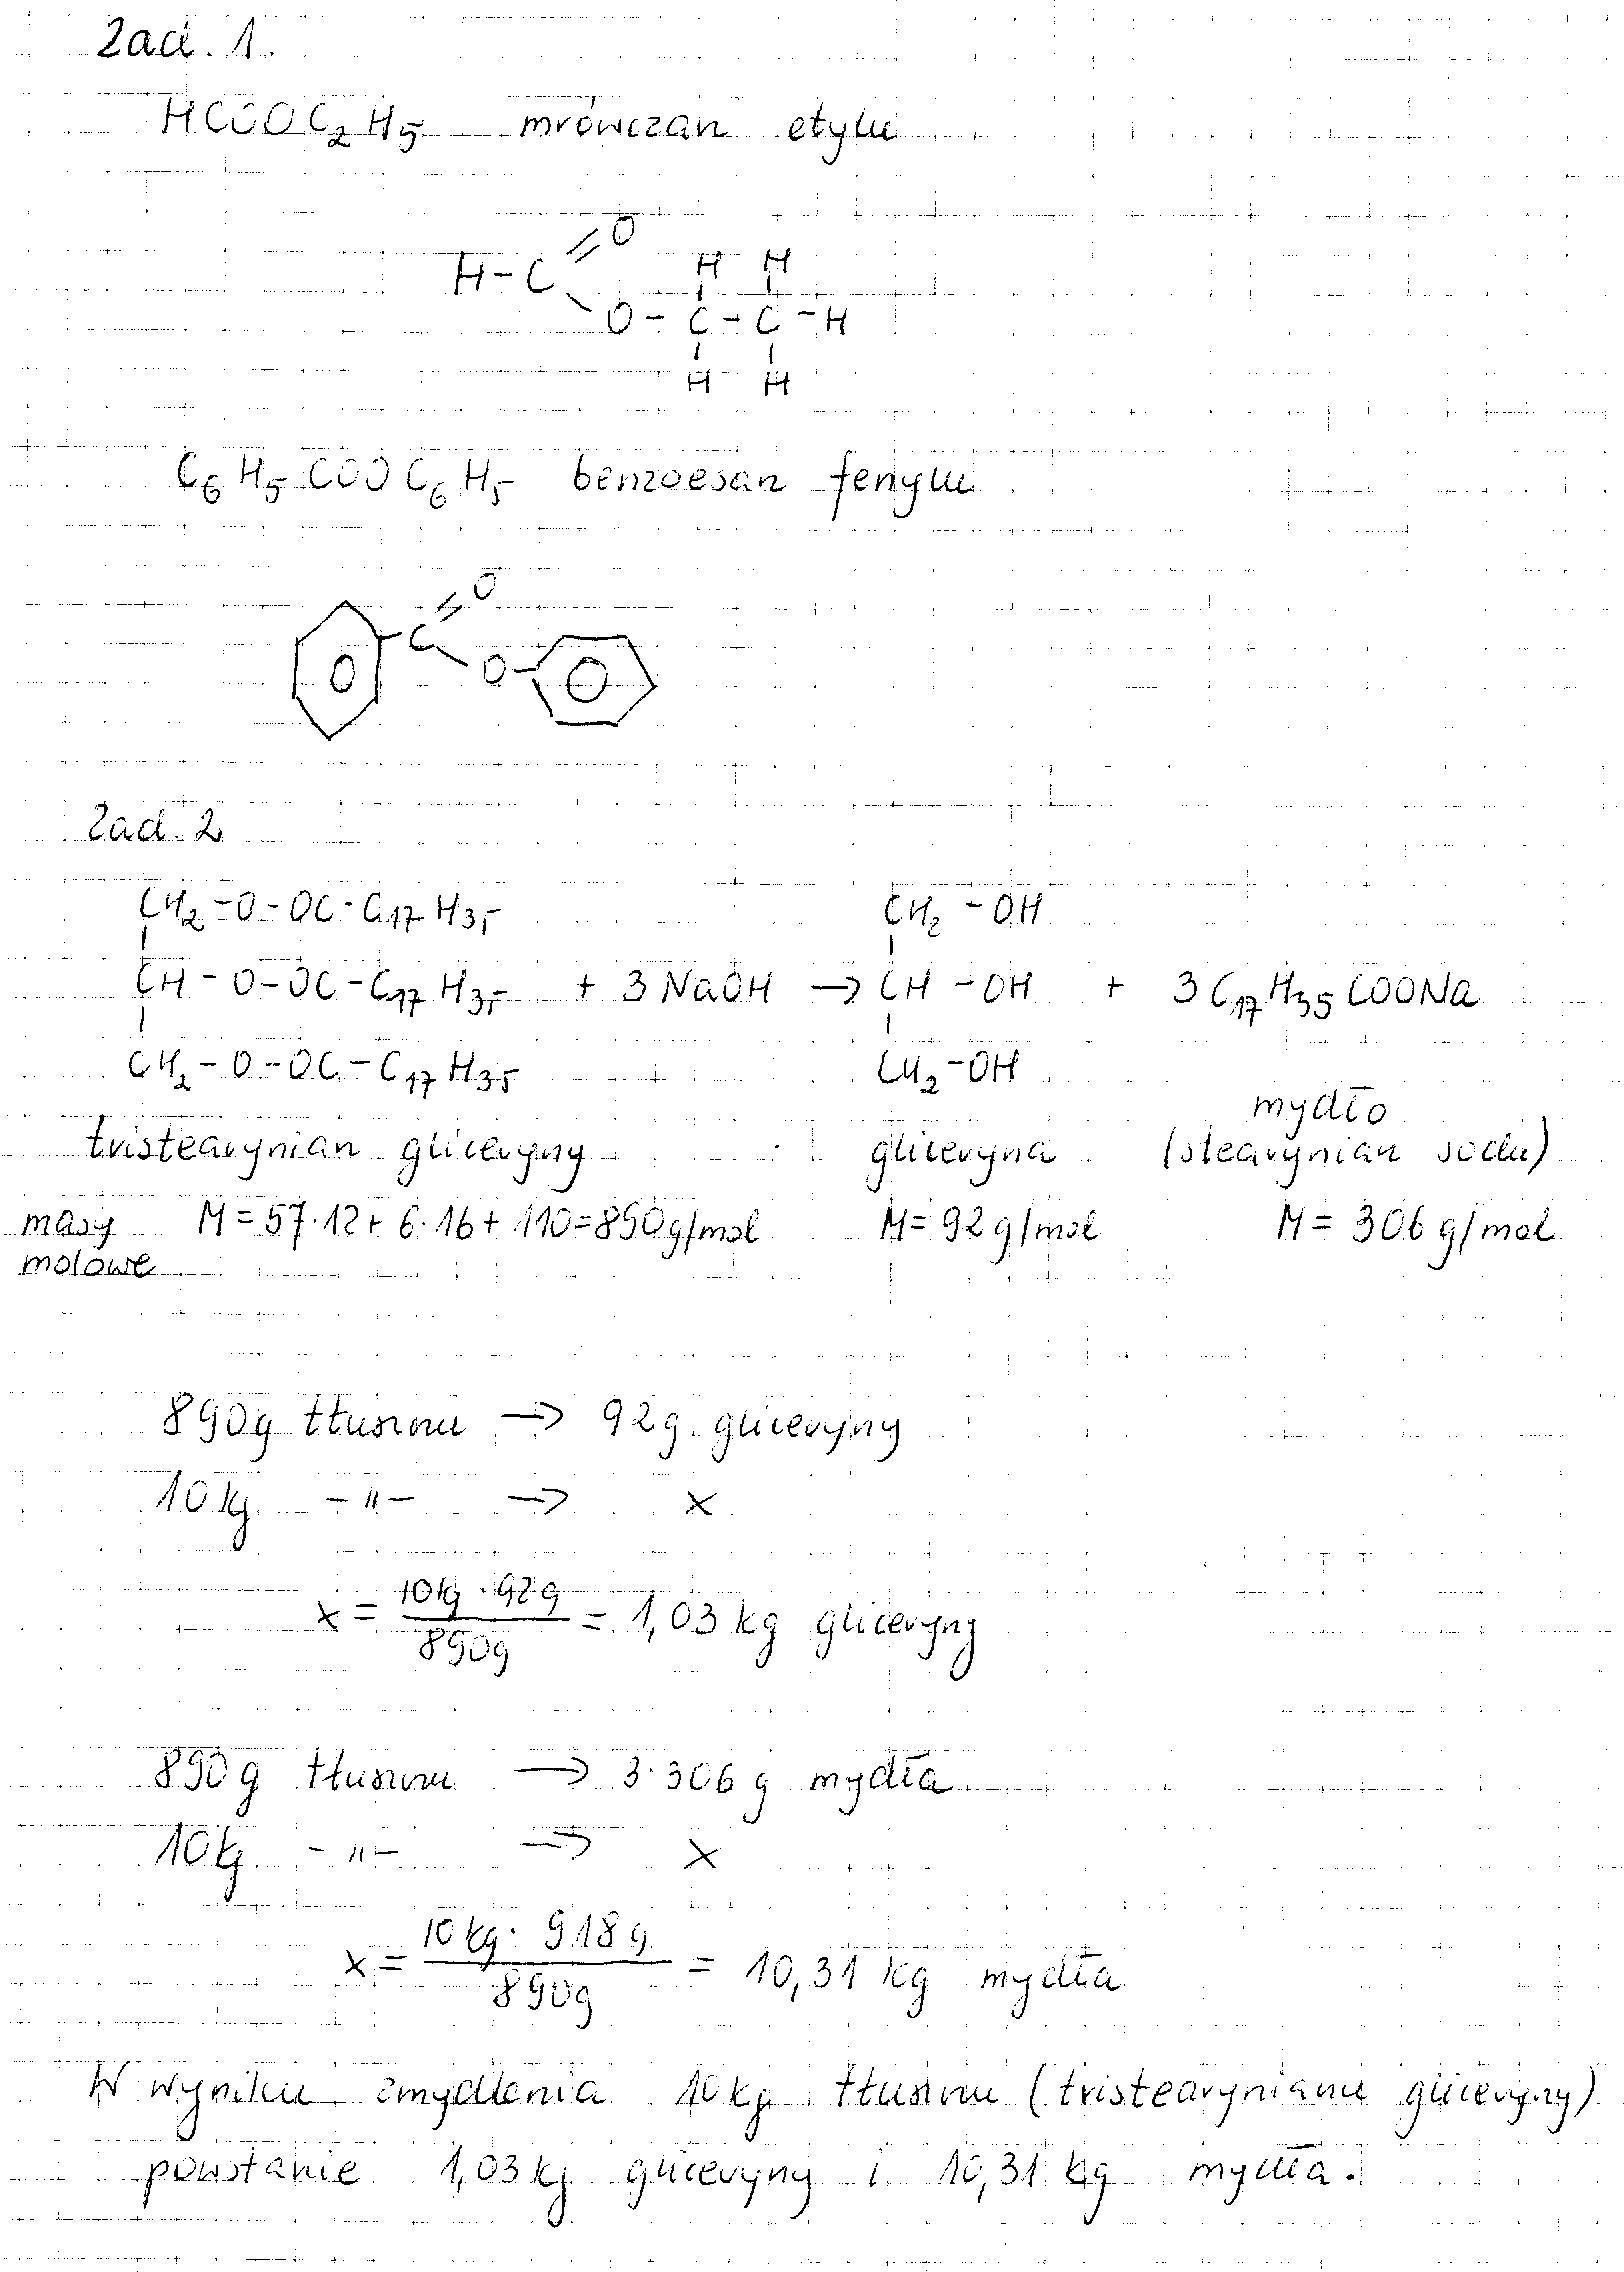 Zad. 1.
HCOOC₂H₅ mrówczan etylu
O
H-C
H H
O-C-C-H
H H
C₆H₅COOC₆H₅ benzoesan fenylu
O
C
O
Zad. 2
CH₂-O-OC-C₁₇H₃₅ CH₂-OH
CH-O-OC-C₁₇H₃₅ + 3 NaOH → CH-OH + 3 C₁₇H₃₅COONa
CH₂-O-OC-C₁₇H₃₅ CH₂-OH
mydło
tristearynian gliceryny gliceryna (stearynian sodu)
masy M = 57·12 + 6·16 + 110 = 890 g/mol M = 92 g/mol M = 306 g/mol
molowe
890g tłuszczu → 92g gliceryny
10 kg -"- → x
x = 10kg·92g / 890g = 1,03 kg gliceryny
890g tłuszczu → 3·306 g mydła
10kg -"- → x
x = 10kg·918g / 890g = 10,31 kg mydła
W wyniku zmydlenia 10kg tłuszczu (tristearynianu gliceryny)
powstanie 1,03kg gliceryny i 10,31 kg mydła.